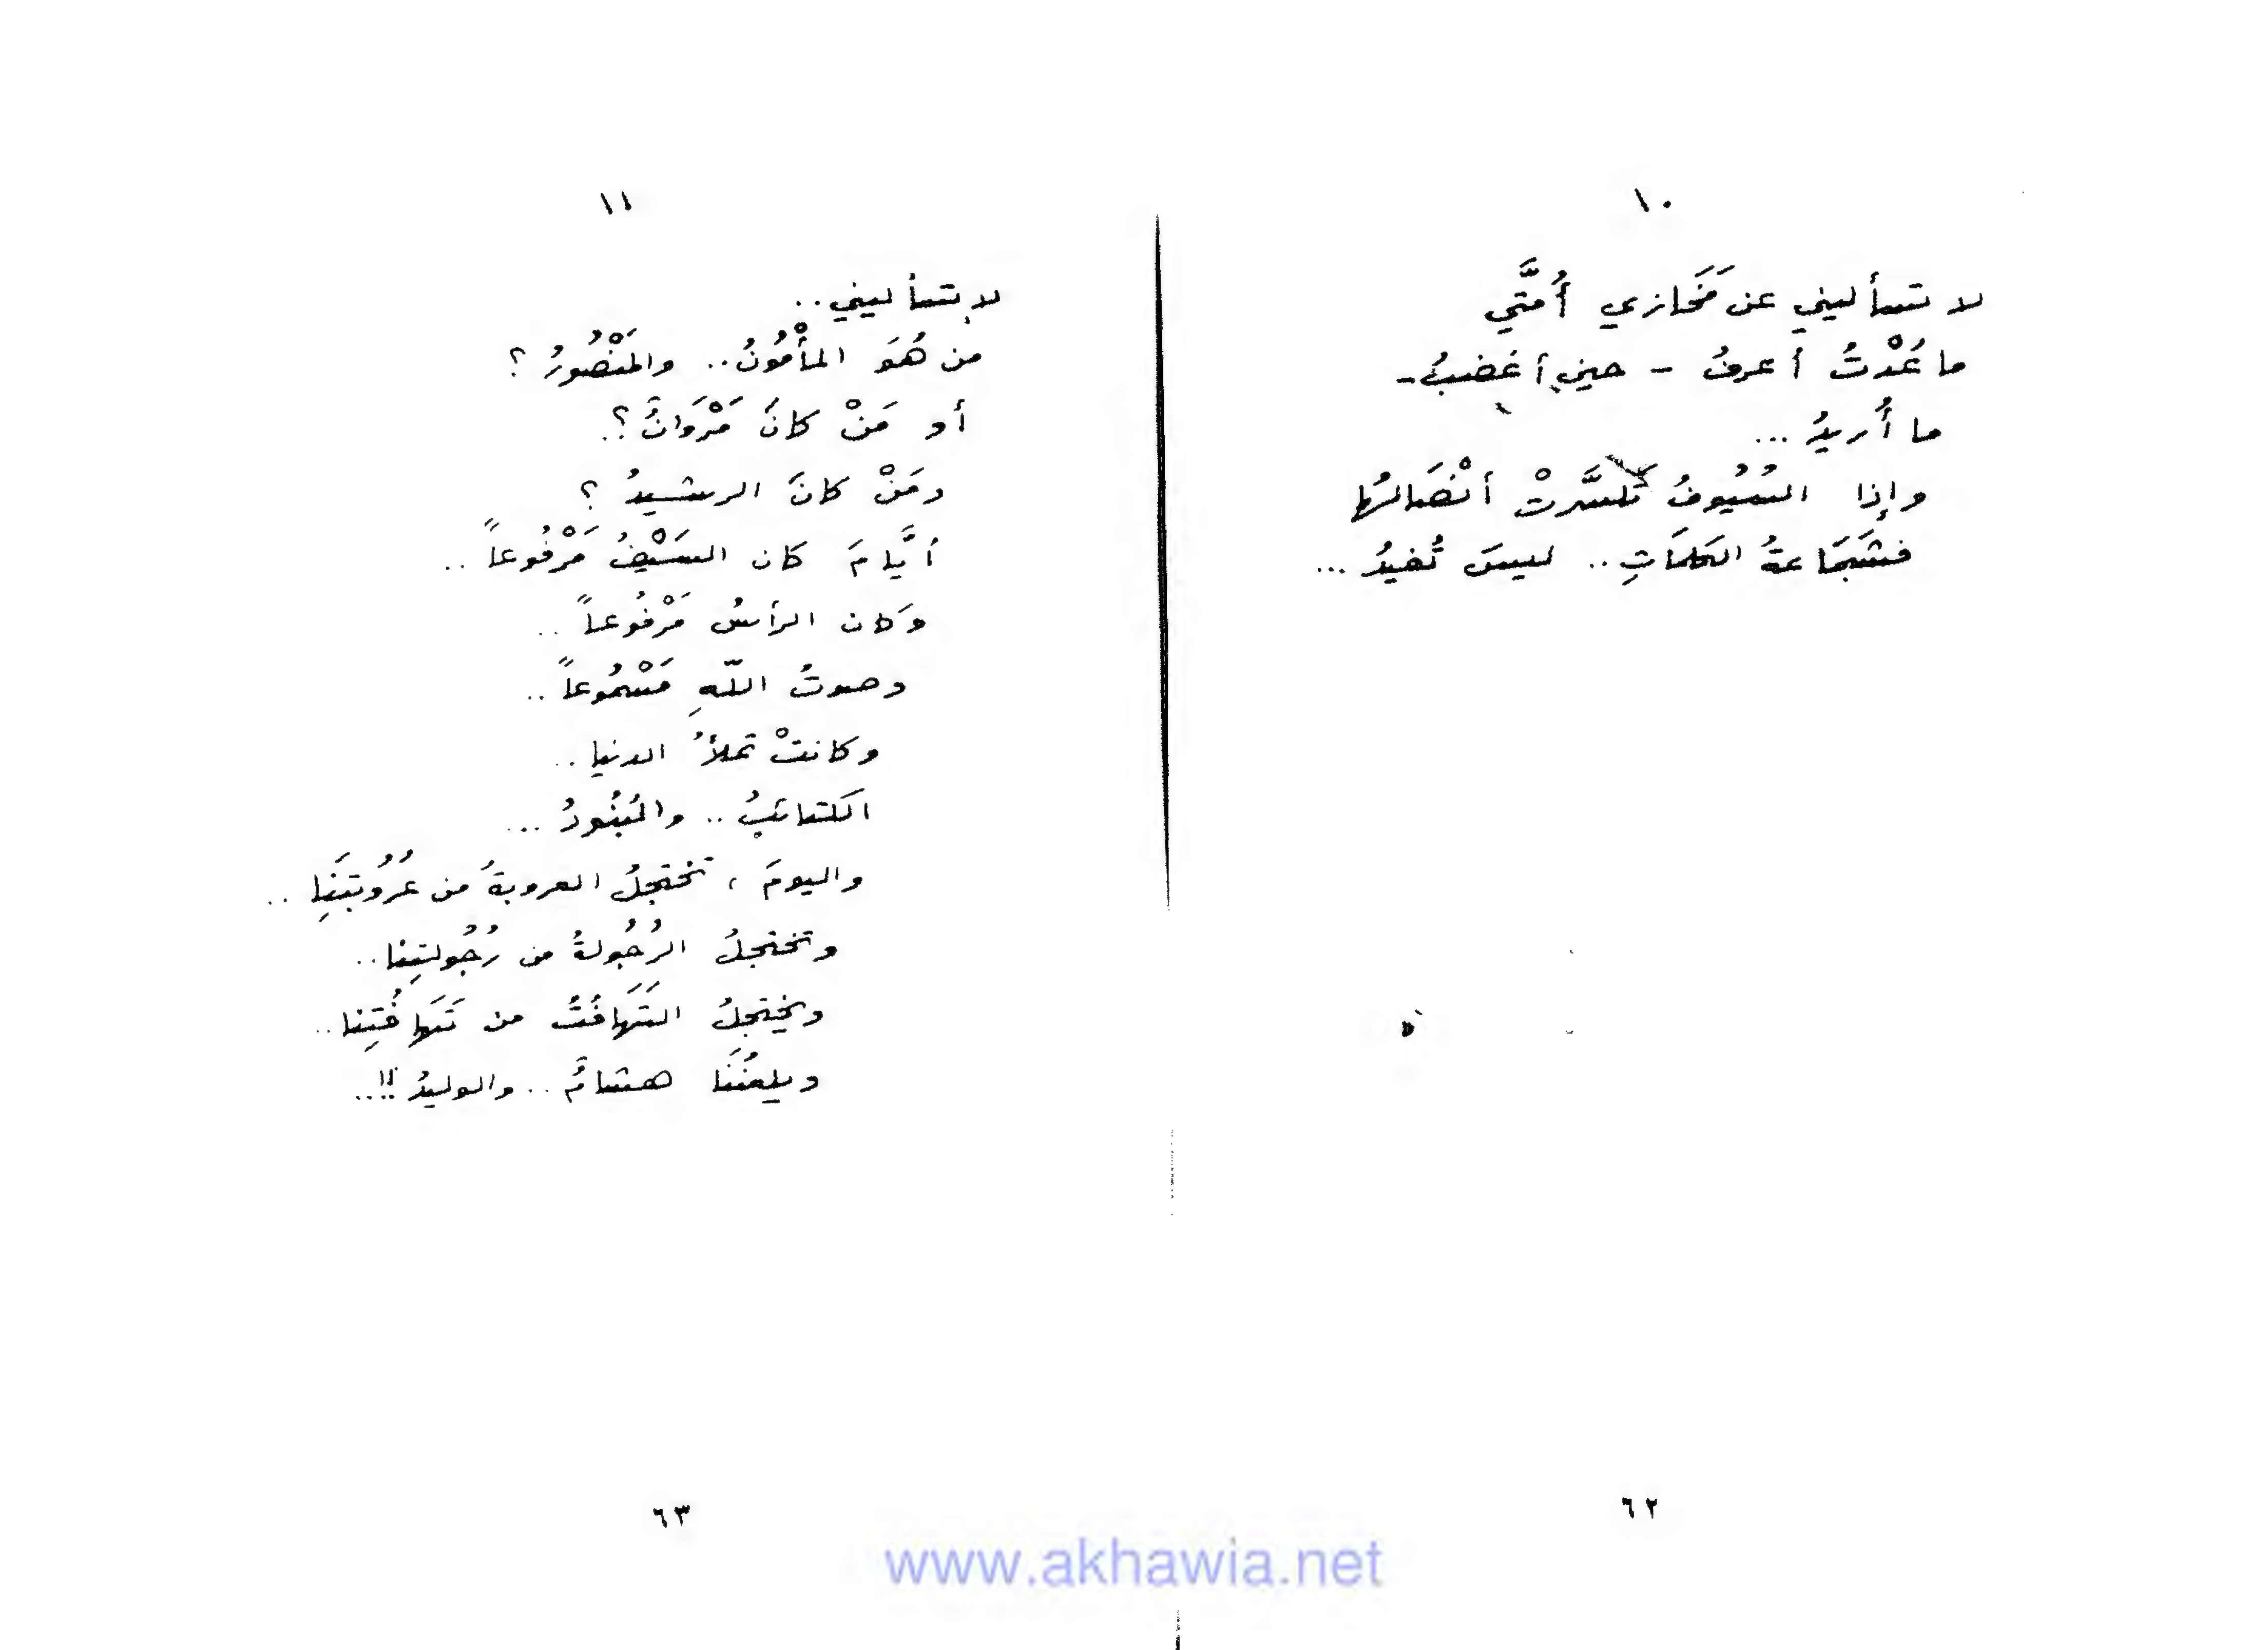 ١٠
لا تسأليني عن مَخَازي أُمَّتي
ما عُدْتُ أعرفُ - حين أغضبُ -
ما أُريدُ ...
وإذا السُيُوفُ تكسَّرتْ أنْصَالُها
فشَجَاعةُ الكلمَاتِ .. ليسَ تُفيدُ ...
٦٢
١١
لا تسأليني ..
من هُوَ المأْمُونُ .. والمَنْصُورُ ؟
أو مَنْ كانَ مَرْوَانُ ؟ .
ومَنْ كانَ الرشيدُ ؟
أيَّامَ كان السَيْفُ مَرْفُوعاً ..
وَكان الرأسُ مَرْفُوعاً ..
وصوتُ اللّهِ مَسْمُوعاً ..
وكانتْ تملأُ الدنيا ..
الكتائبُ .. والبُنُودُ ...
واليومَ ، تختجلُ العروبةُ من عُرُوبَتِنا ..
وتختجلُ الرُجُولةُ من رُجُولتِنا ..
ويختجلُ التَهَافُتُ من تَهَافُتِنا ..
ويلعنُنَا هشامُ .. والوليدُ !! ..
٦٣
www.akhawia.net